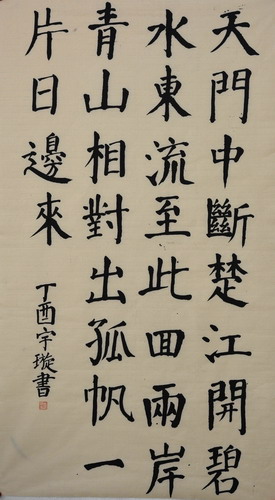 天門中斷楚江開碧
水東流至此回兩岸
青山相對出孤帆一
片日邊來
丁酉宇璇書